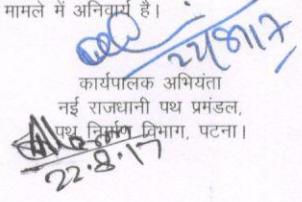 मामले में अनिवार्य है।
कार्यपालक अभियंता
नई राजधानी पथ प्रमंडल,
पथ निर्माण विभाग, पटना।
22.8.17